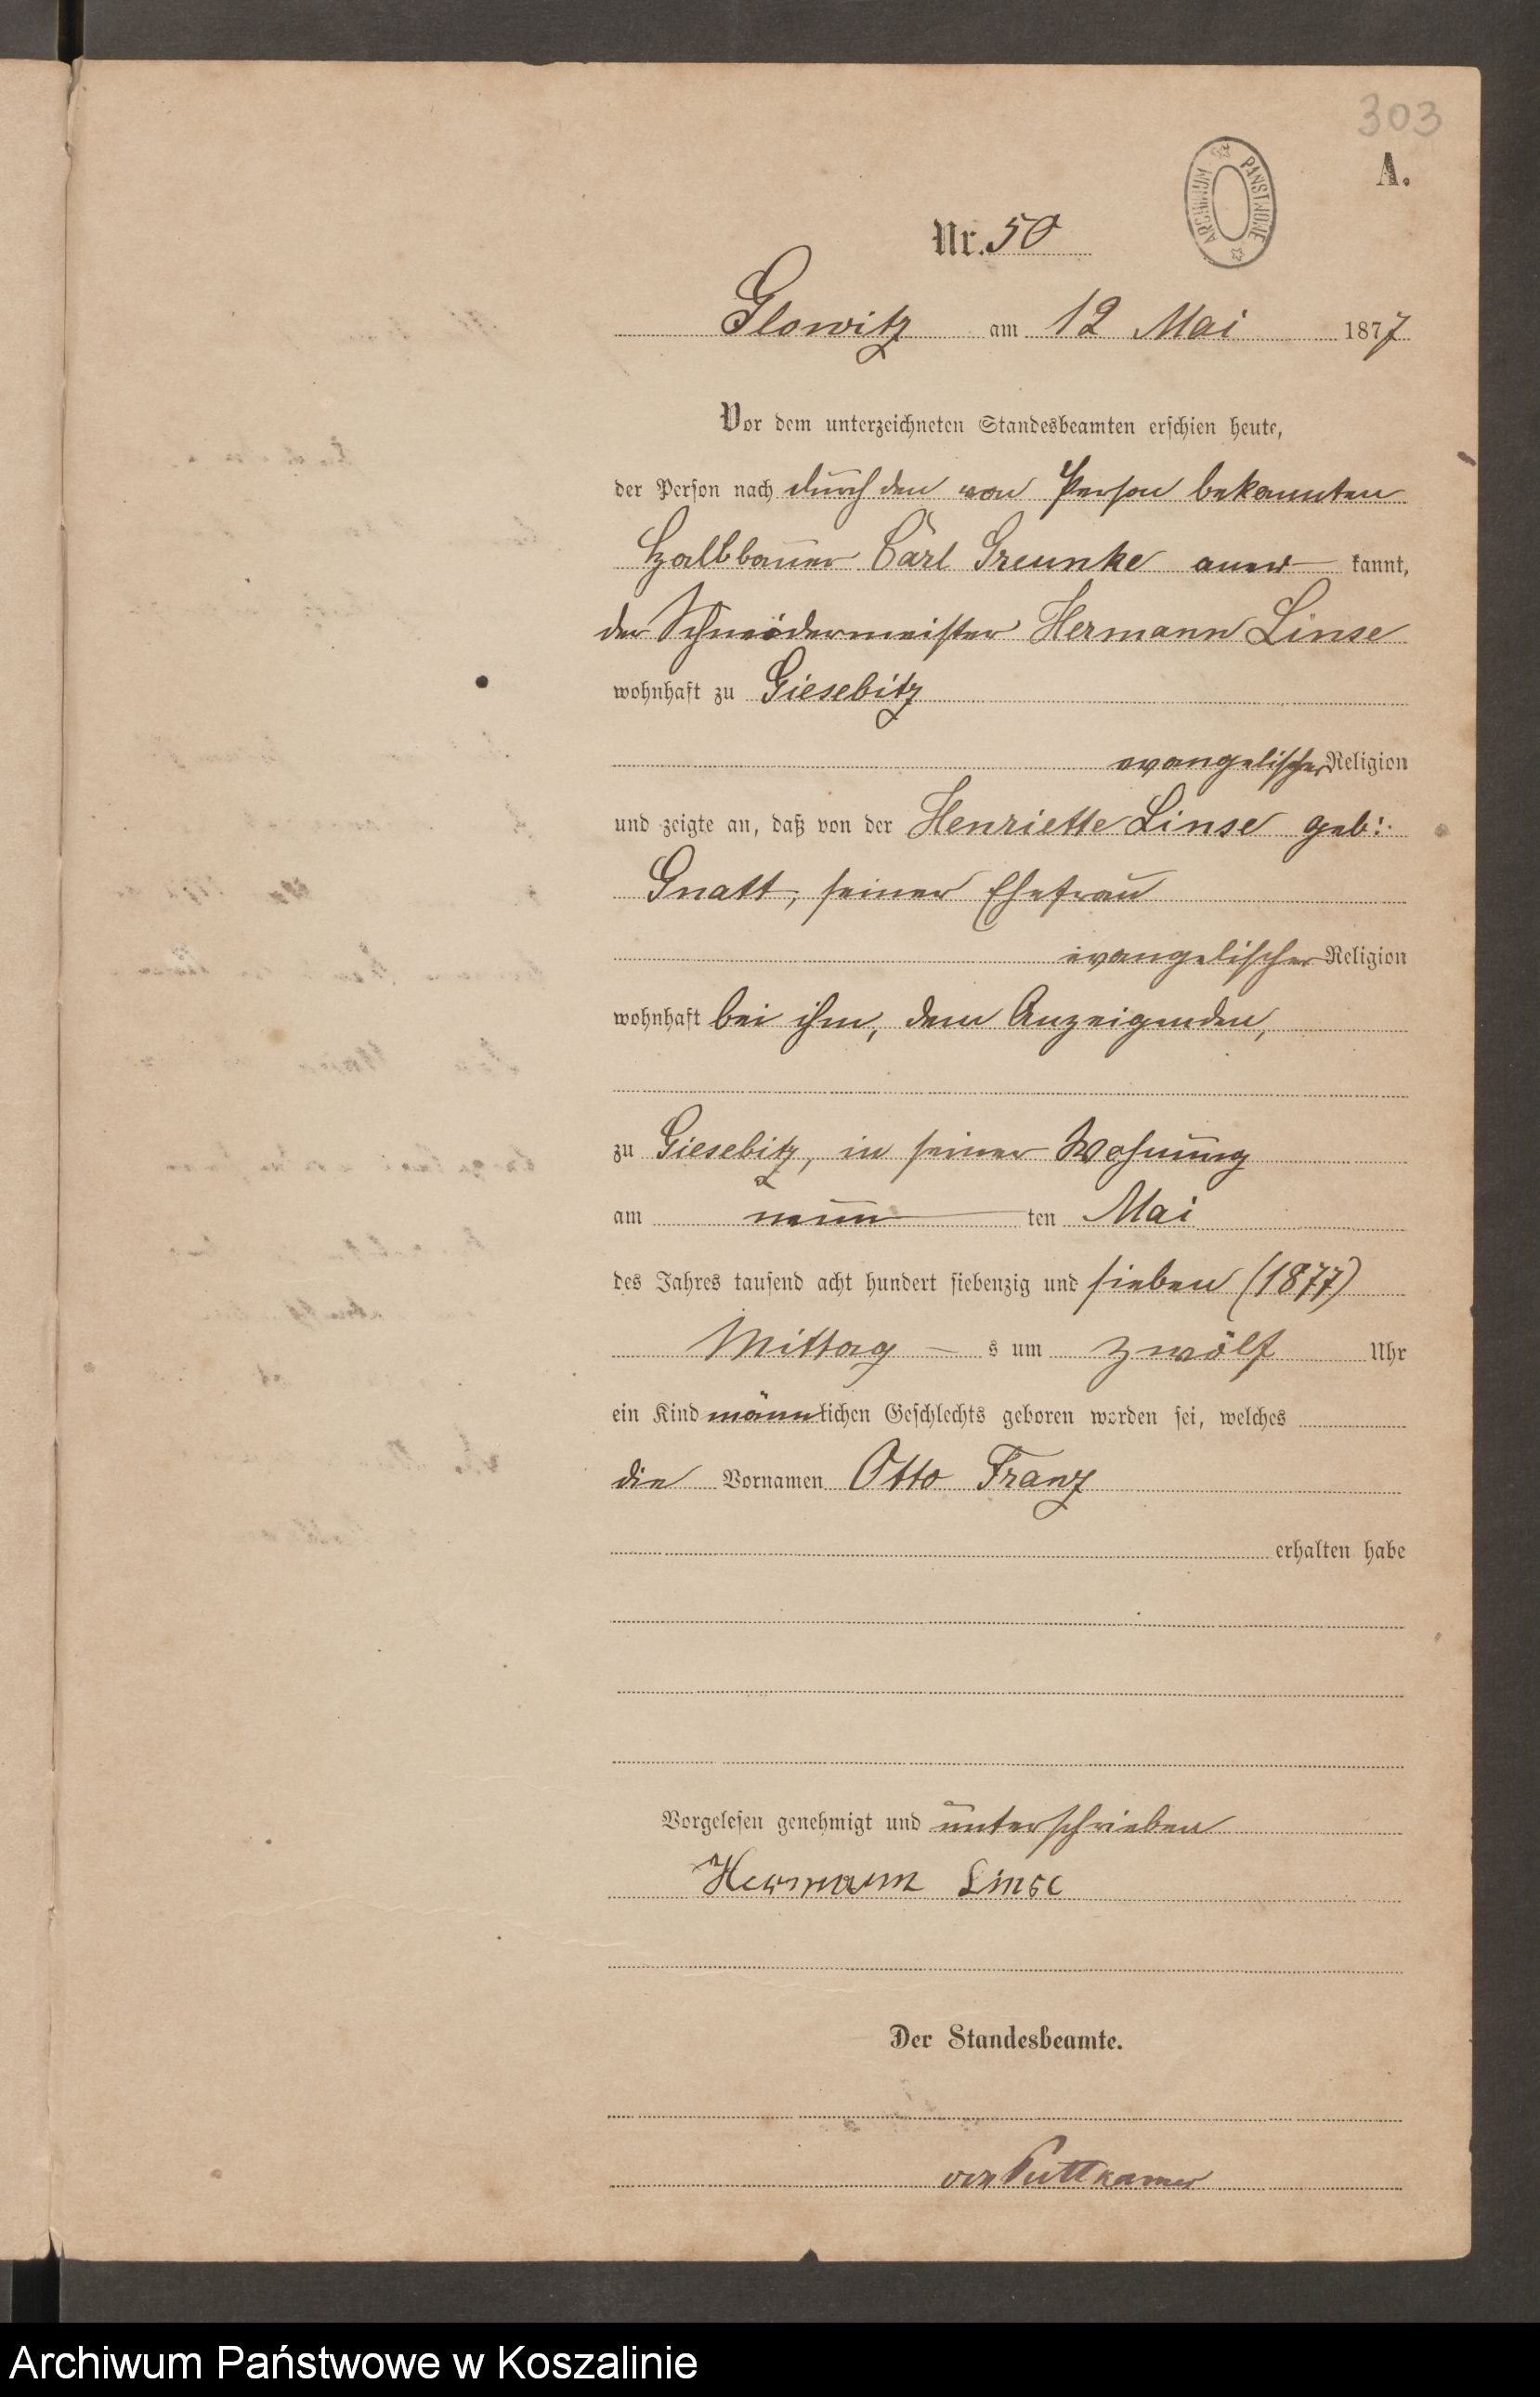 303
A.
ARCHIWUM PAŃSTWOWE
Nr. 50
Glowitz am 12 Mai 1877
Vor dem unterzeichneten Standesbeamten erschien heute,
der Person nach durch den von Person bekannten
Halbbauer Carl Greunke aner- kannt,
der Schneidermeister Hermann Linse
wohnhaft zu Giesebitz
evangelischer Religion
und zeigte an, daß von der Henriette Linse geb:
Gnatt, seiner Ehefrau
evangelischer Religion
wohnhaft bei ihm, dem Anzeigenden,
zu Giesebitz, in seiner Wohnung
am neun ten Mai
des Jahres tausend acht hundert siebenzig und sieben (1877)
Mittag - s um zwölf Uhr
ein Kind männlichen Geschlechts geboren worden sei, welches
die Vornamen Otto Franz
erhalten habe
Vorgelesen genehmigt und unterschrieben
Hermann Linse
Der Standesbeamte.
von Puttkamer
Archiwum Państwowe w Koszalinie